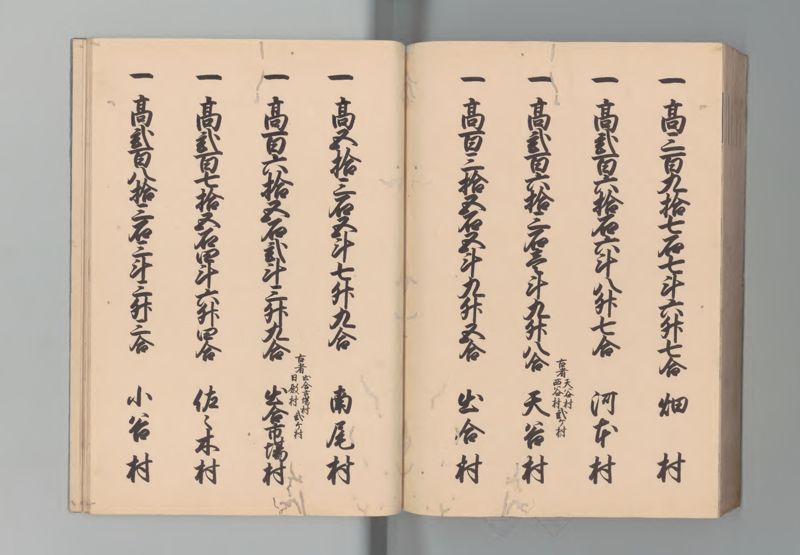 一 高三百九拾七石七斗六升七合 畑村
一 高弐百六拾石六斗八升七合 河本村
一 高弐百六拾三石壱斗九升八合 天谷村
古者 天谷村 西谷村 弐ケ村
一 高百三拾五石五斗九升五合 出合村
一 高五拾三石五斗七升九合 南尾村
一 高百六拾五石弐斗三升九合 出合市場村
古者 出合市場村 日殿村 弐ケ村
一 高弐百七拾五石四斗六升四合 佐々木村
一 高弐百八拾三石三斗三升三合 小谷村